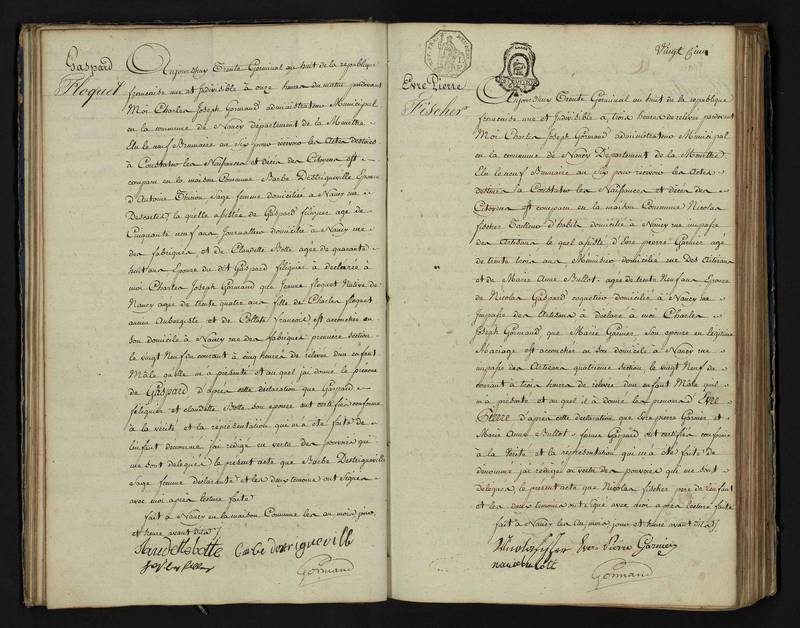 Gaspard
Floquet
Aujourdhuy Trente Germinal an huit de la republique
francaise une et Indivisible à onze heures du matin pardevant
Moi Charles Joseph Gormand administrateur Municipal
en la commune de Nancy Département de la Meurthe
Elu le neuf Brumaire an six pour recevoir les Actes destinés
à Constater les Naissances et décès des Citoyens est
comparu en la maison Commune Barbe Destrigueville Epouse
d'Antoine Thirion Sage femme domiciliée à Nancy rue
Descartes la quelle assistée de Gaspard fliquer agé de
Cinquante neuf ans Journallier domicilié à Nancy rue
des fabriques et de Claudette Botte agée de quarante
huit ans Epouse du dt Gaspard fliquer à declarée à
moi Charles Joseph Gormand que Jeanne floquet Native de
Nancy agée de trente quatre ans fille de Charles floquet
ancien Aubergiste et de Collete francois est accouchée en
son domicile à Nancy rue des fabriques premiere section
le vingt Neuf du courant à cinq heures de relevée d'un enfant
Mâle qu'elle m'a présenté et au quel j'ai donné le prénom
de Gaspard d'après cette déclaration que Gaspard
fliquer et claudette Botte son epouse ont certifié conforme
à la vérité et la représentation qui m'a été faite de
l'enfant denommé j'ai rédigé en vertu des pouvoirs qui
me sont delegués le présent acte que Barbe Destrigueville
sage femme déclarante et les deux temoins ont signés
avec moi après lecture faite
fait à Nancy en la maison Commune les an mois jour
et heure avant dits
Claudette botte barbe destrigueville
Gormand
Vingt
Evre Pierre
Fischer
Aujourdhuy Trente Germinal an huit de la republique
francaise une et Indivisible à trois heures de relevée pardevant
Moi Charles Joseph Gormand administrateur Municipal
en la commune de Nancy Département de la Meurthe
Elu le neuf Brumaire an Six pour recevoir les Actes
destinés à Constater les Naissances et décès des
Citoyens est comparu en la maison Commune Nicolas
fischer Tailleur d'habits domicilié à Nancy impasse
des Artisans le quel assisté d'Evre pierre Garnier agé
de trente trois ans Menuisier domicilié rue Des Artisans
et de Marie Anne Bullot agée de trente Neuf ans Epouse
de Nicolas Gaspard domicilié à Nancy rue
impasse des Artisans à déclaré à moi Charles
Joseph Gormand que Marie Garnier Son epouse en légitime
Mariage est accouchée en son domicile à Nancy rue
impasse des Artisans quatrième section, le vingt Neuf du
courant à trois heures de relevée d'un enfant Mâle qu'il
m'a présenté et au quel il a donné les prenoms d'Evre
Pierre d'après cette déclaration que Evre pierre Garnier et
Marie Anne Bullot femme Gaspard ont certifiée conforme
à la Vérité et la représentation qui m'a été faite de
denommé j'ai rédigé en vertu des pouvoirs qui me sont
delegués, le présent acte que Nicolas fischer pere de l'enfant
et les deux temoins ont signé avec moi après lecture faite
fait à Nancy les an, mois jour et heure avant dits
Nicolas fischer Evre Pierre Garnier
Gormand